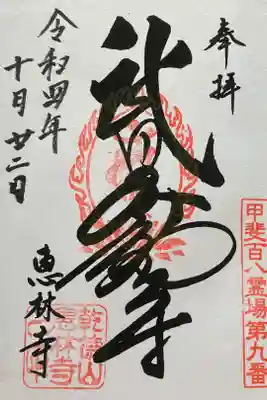 奉拝
甲斐百八霊場第九番
武田不動尊
令和四年
十月廿二日
恵林寺
乾徳山
恵林寺